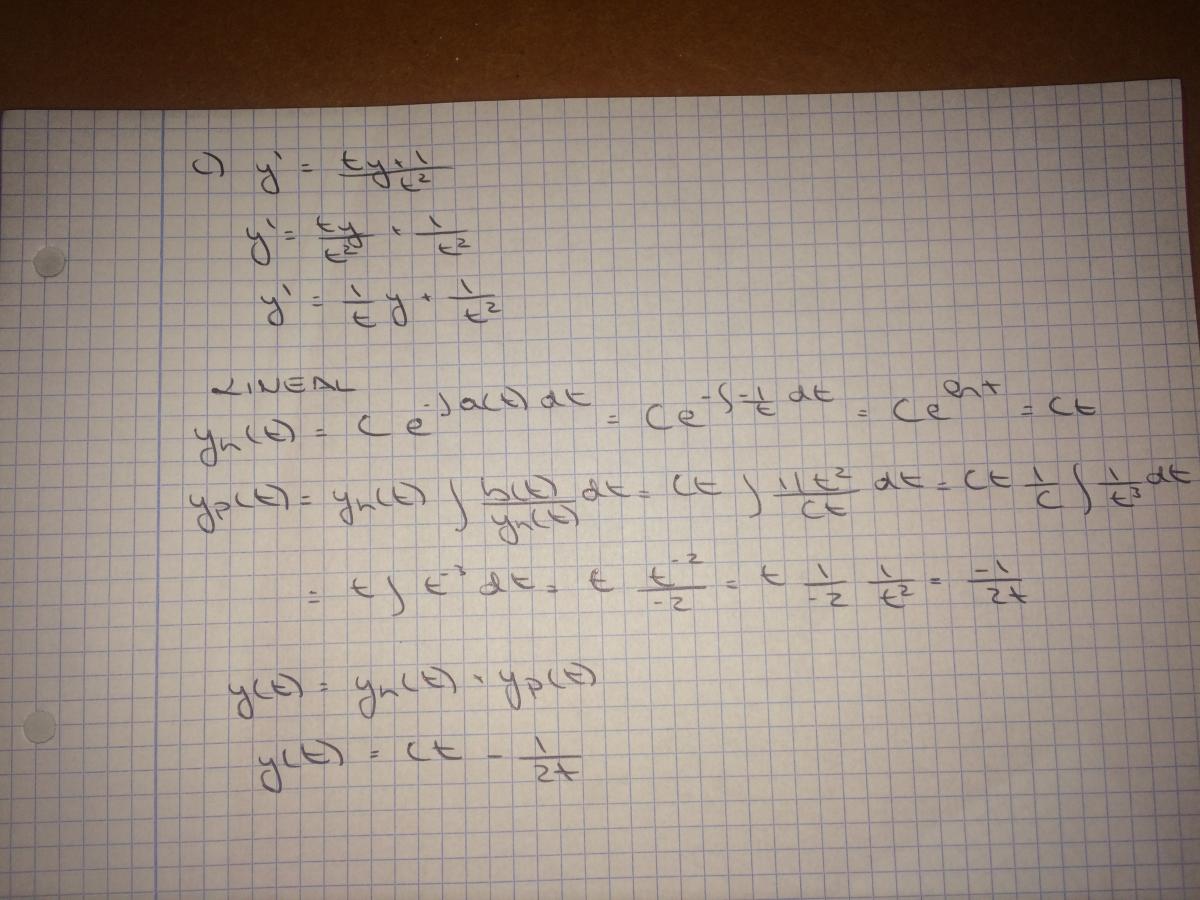 c) y' = (ty + 1)/t²
y' = ty/t² + 1/t²
y' = 1/t y + 1/t²
LINEAL
yₕ(t) = C e^(-∫a(t) dt) = C e^(-∫-1/t dt) = C e^(ln t) = Ct
yₚ(t) = yₕ(t) ∫ b(t)/yₕ(t) dt = Ct ∫ (1/t²)/(Ct) dt = Ct 1/C ∫ 1/t³ dt
= t ∫ t⁻³ dt = t t⁻²/-2 = t 1/-2 1/t² = -1/2t
y(t) = yₕ(t) + yₚ(t)
y(t) = Ct - 1/2t